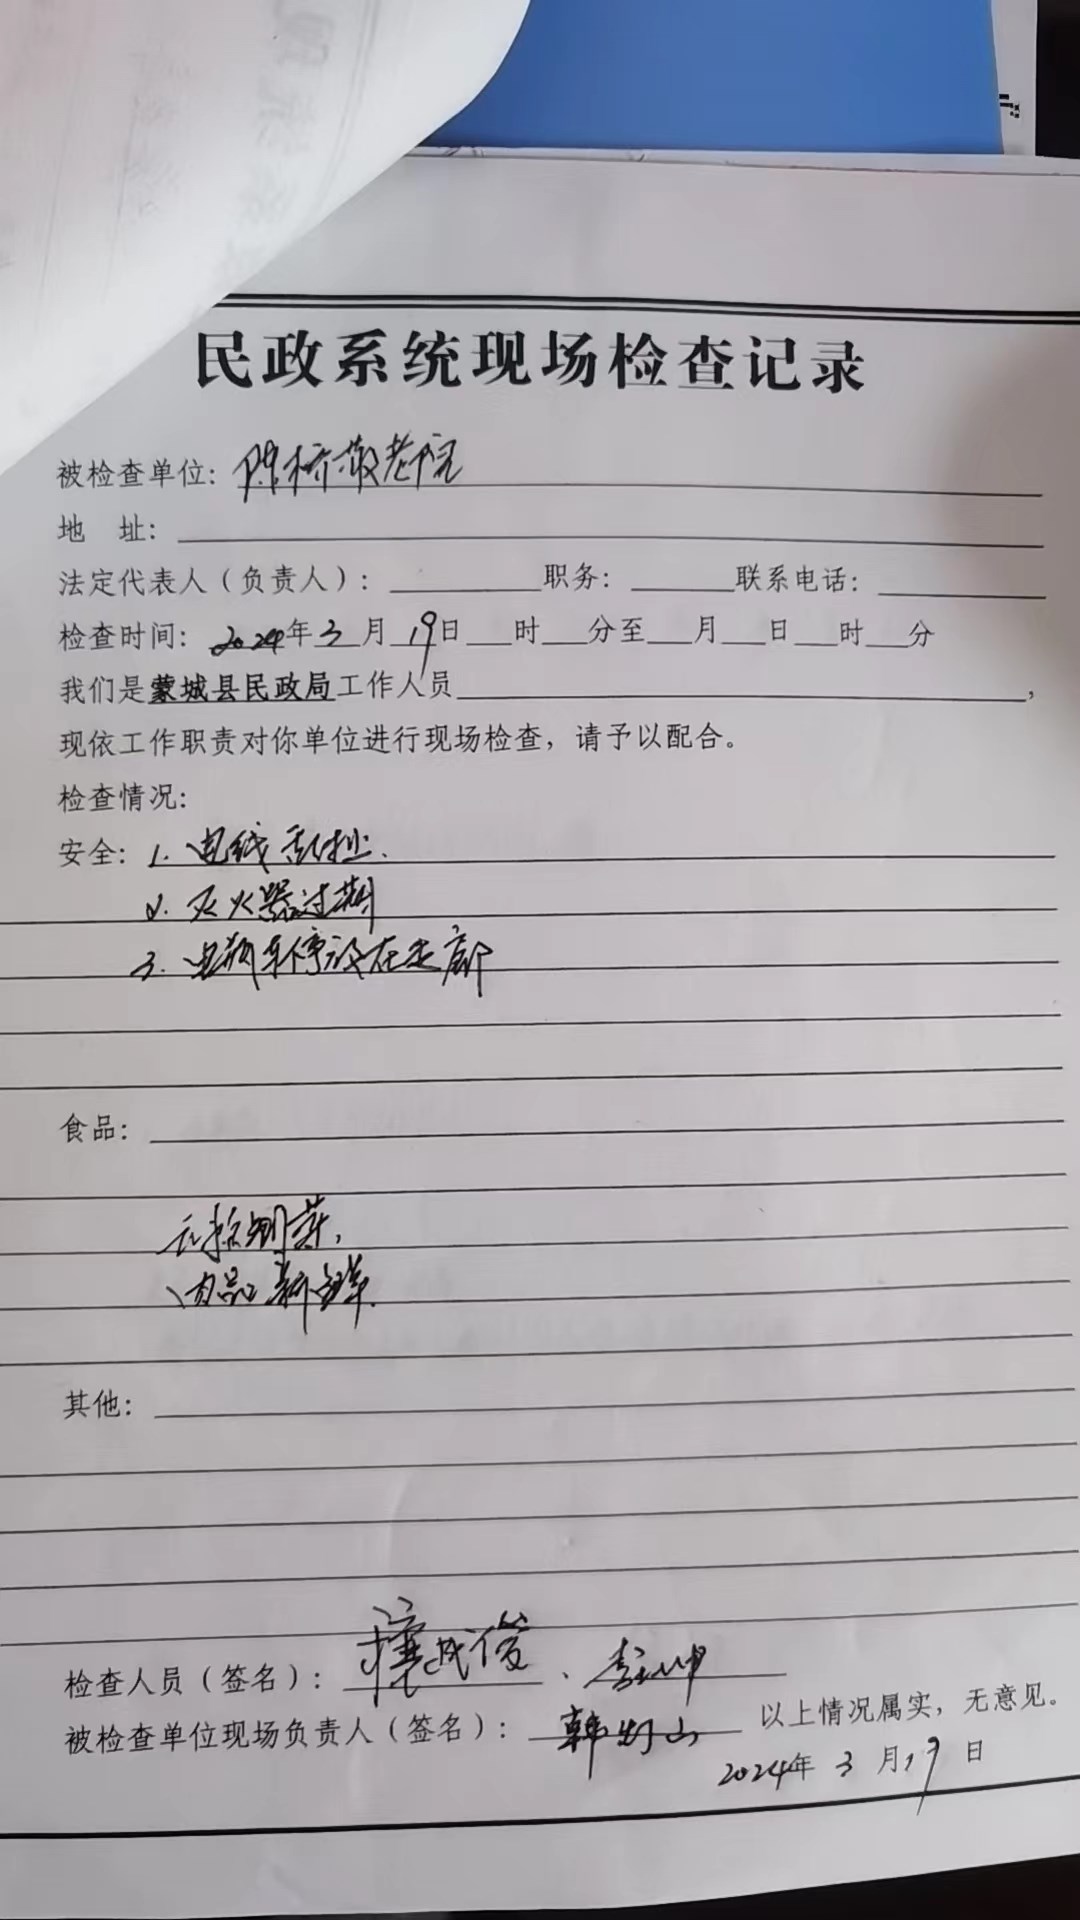 民政系统现场检查记录
被检查单位：陈桥敬老院
地 址：
法定代表人（负责人）：职务：联系电话：
检查时间：2024年3月19日 时 分至 月 日 时 分
我们是蒙城县民政局工作人员，
现依工作职责对你单位进行现场检查，请予以配合。
检查情况：
安全：1. 电线乱拉.
2. 灭火器过期
3. 电瓶车停放在走廊
食品：
肉品新鲜.
其他：
检查人员（签名）：
被检查单位现场负责人（签名）：韩 山 以上情况属实，无意见。
2024年3月19日